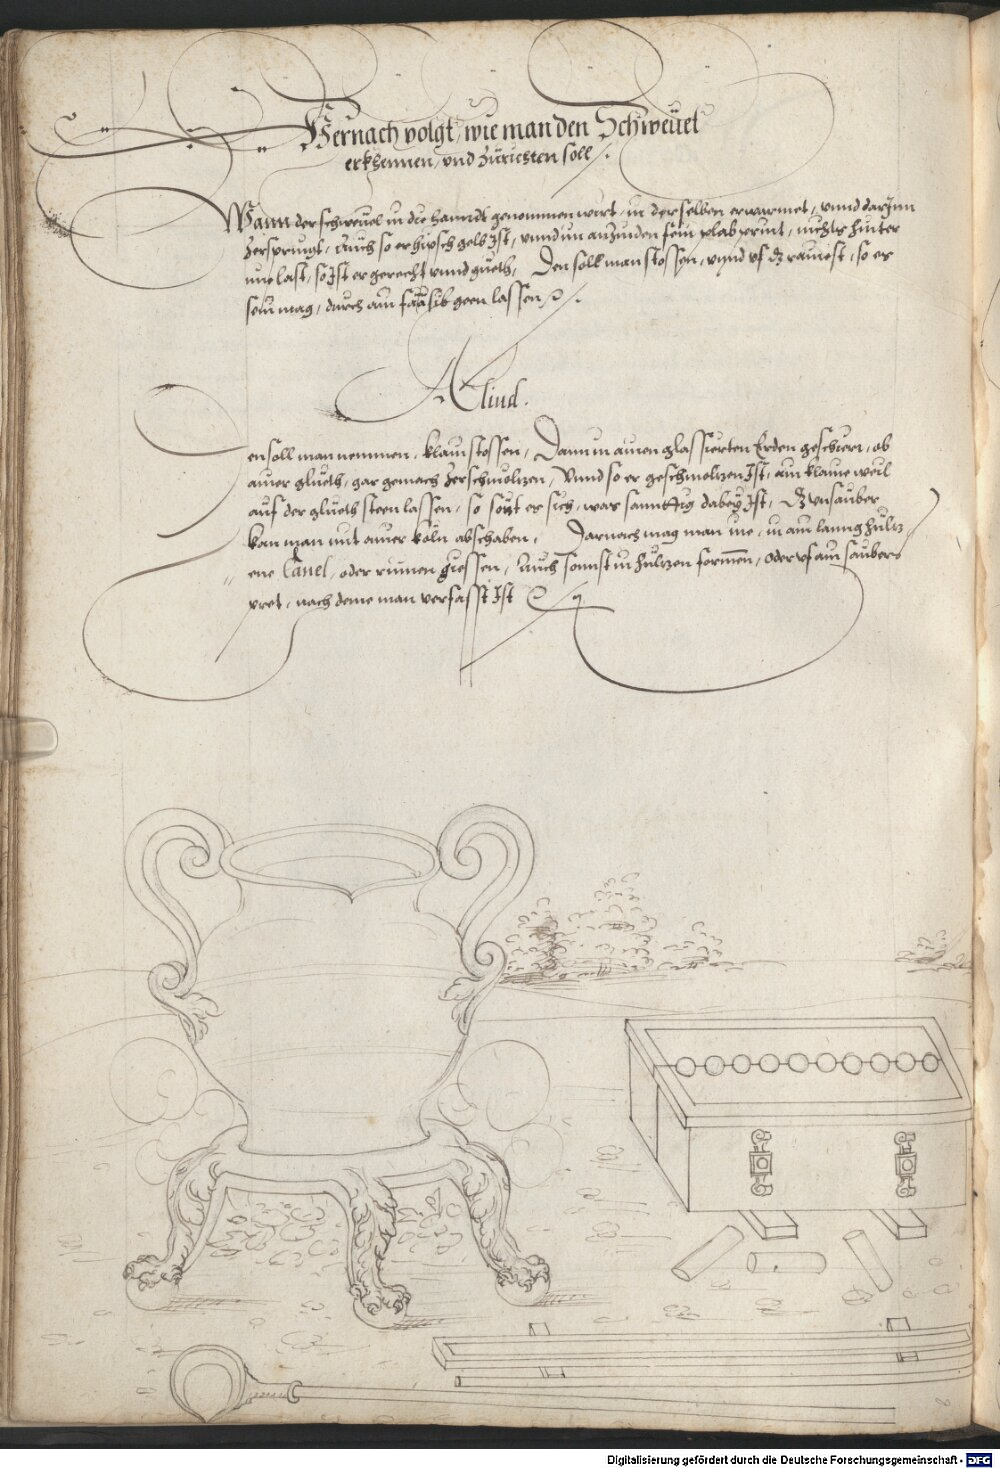 Hernach volgt, wie man den Schweüel
erkhennen, und züruesten soll.
Wann der schweüel in die hanndt genommen wirt, in derselben erwarmet, unnd darJnn
zersprungt, Auch so er hipsch gelb Jst, unnd im anzunden fein plab print, nichts hinter
ime last, so Jst er gerecht unnd gueth, Den soll man stossen, unnd uf dz rainest, so er
sein mag, durch ain sib geen lassen
Aliud.
en soll man nemmen, klain stossen, Dann in ainen glassierten Erden geschierr, ob
ainer glueth, gar gemach zerschmoltzen, Unnd so er geschmoltzen Jst, ain klaine weil
auf der glueth steen lassen, so setzt er sich, was sanndtig dabey Jst, Dz unsauber
kan man mit ainer köln abschaben, Darnach mag man ine, in ain lanng hültz
ene Canel, oder rinnen giessen, Auch sonnst in hültzen formen, oder uf ain sauber
pret, nach deme man verfasst Jst
Digitalisierung gefördert durch die Deutsche Forschungsgemeinschaft - DFG